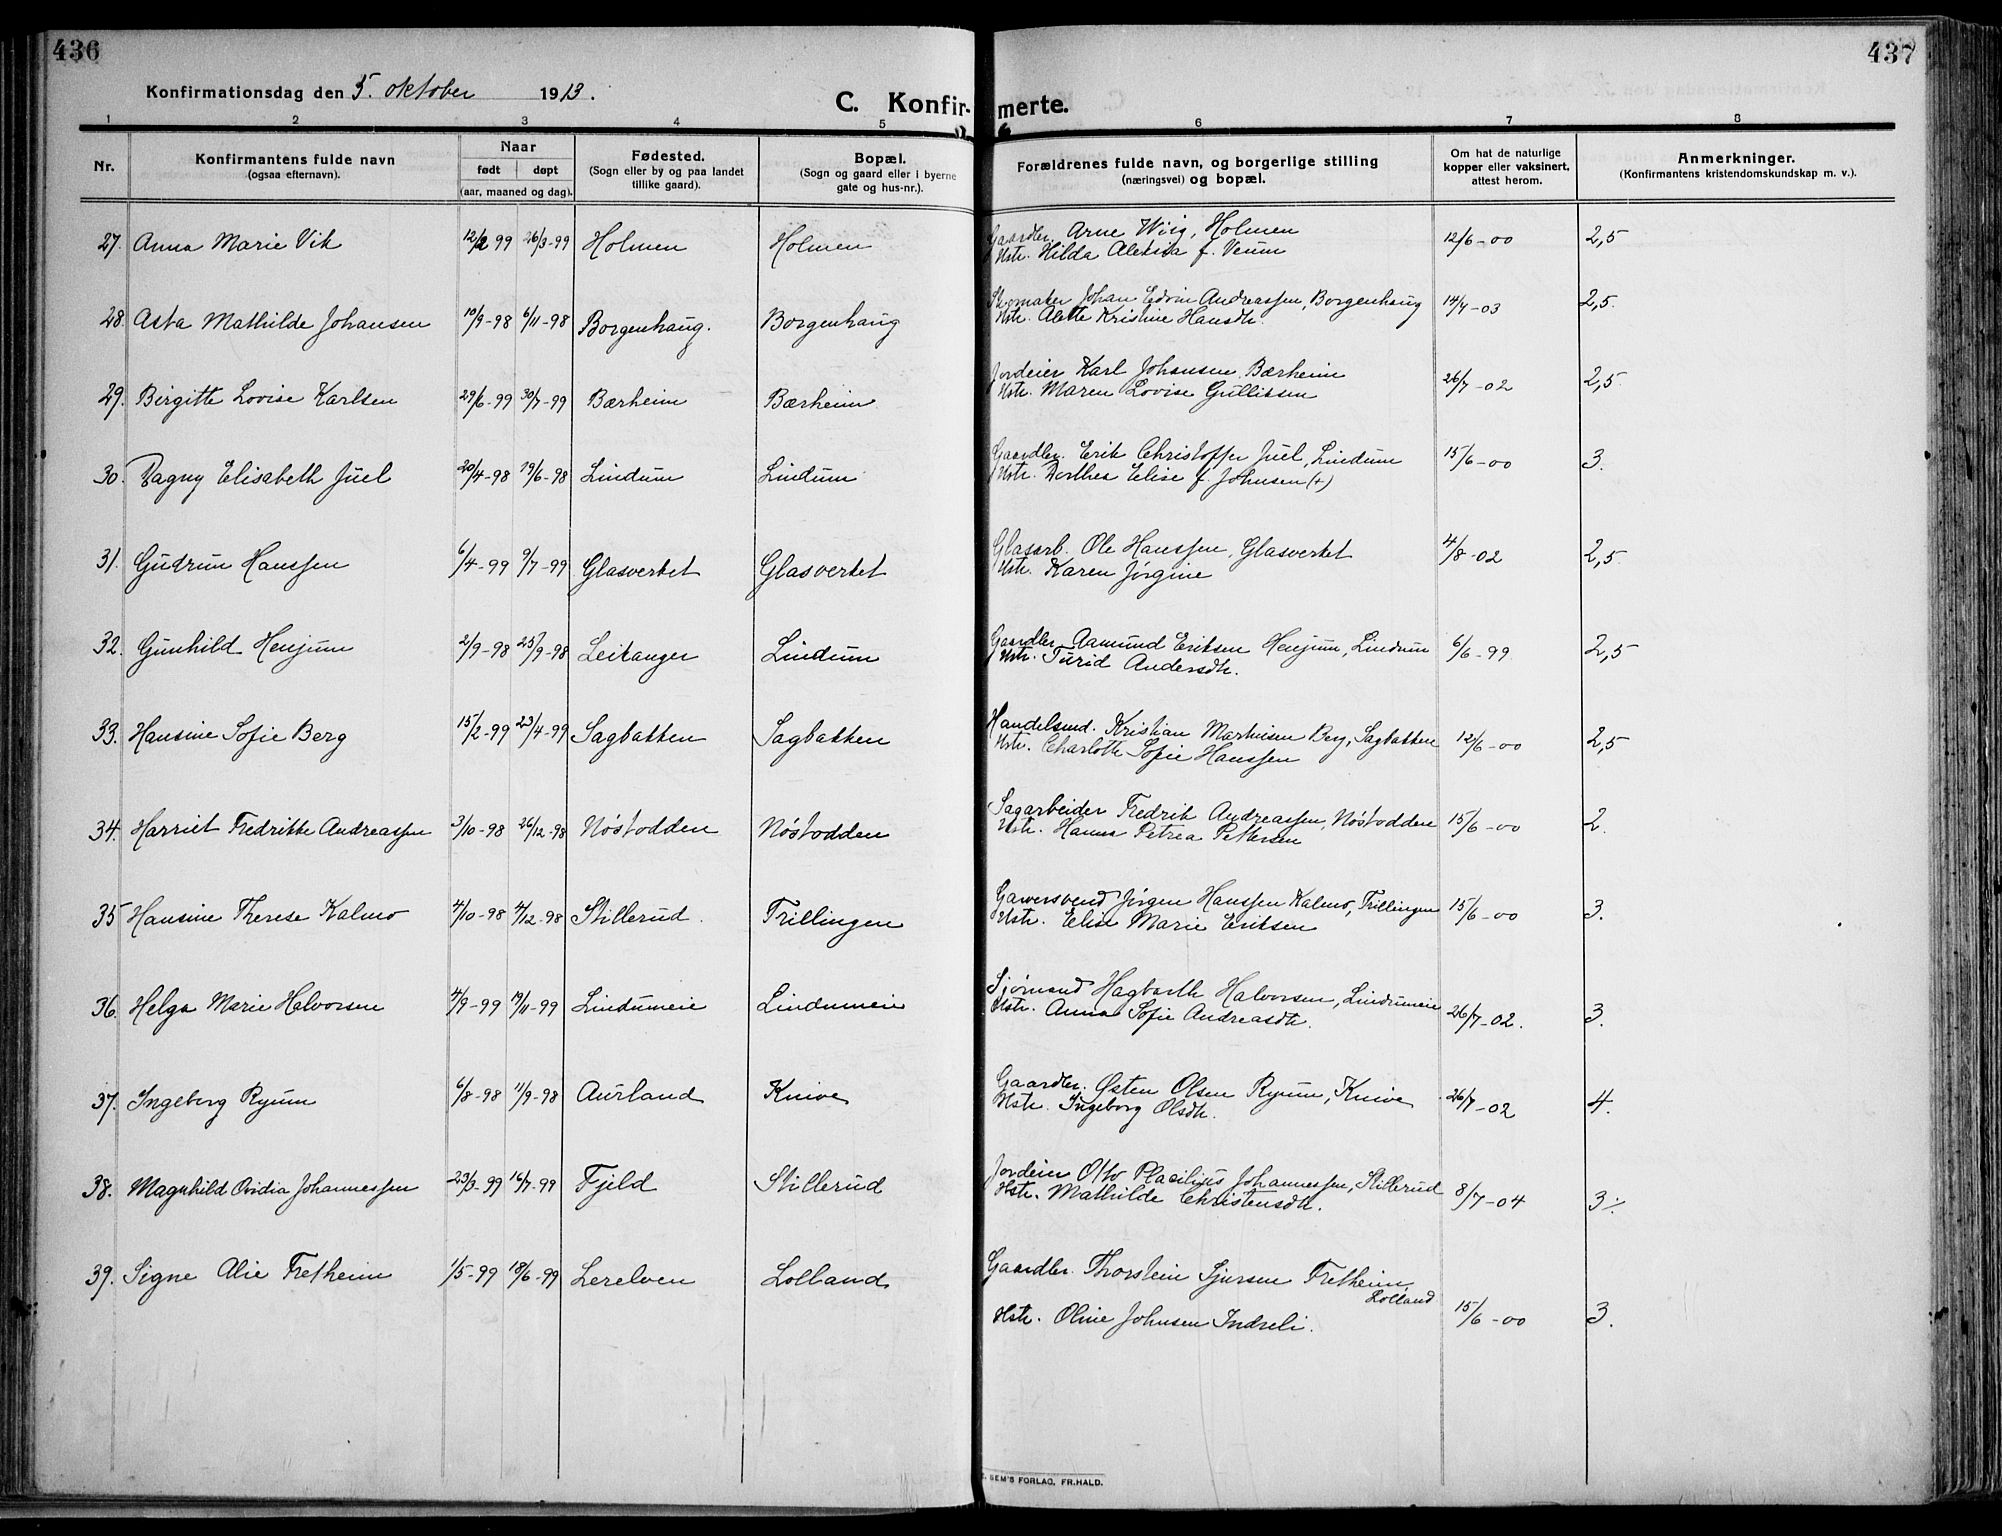 436
437
Konfirmationsdag den 5. oktober 1913.
C. Konfir-merte.
1 2 3 4 5 6 7 8
Nr.
Konfirmantens fulde navn
(ogsaa efternavn).
Naar
født døpt
(aar, maaned og dag).
Fødested.
(Sogn eller by og paa landet
tillike gaard).
Bopæl.
(Sogn og gaard eller i byerne
gate og hus-nr.).
Forældrenes fulde navn, og borgerlige stilling
(næringsvei) og bopæl.
Om hat de naturlige
kopper eller vaksinert,
attest herom.
Anmerkninger.
(Konfirmantens kristendomskundskap m. v.).
27. Anna Marie Vik 12/2 99 26/3-99 Holmen Holmen Gaardbr. Arne Wiig, Holmen 12/6-00 2,5
Hstr. Hilda Aleksa f. Venm
28. Asta Mathilde Johansen 10/9-98 6/11-98 Borgenhaug. Borgenhaug Skomaker Johan Edvin Andreassen, Borgenhaug 14/7-03 2,5.
Hstr. Alette Kristine Hansdtr.
29. Birgitte Lovise Karlsen 29/6-99 30/7-99 Bærheim Bærheim Jordeier Karl Johansen Bærheim 26/7-02 2,5.
Hstr. Maren Lovise Gulliksen
30. Dagny Elisabeth Juel 20/4-98 19/6-98 Lindum Lindum Gaardbr. Erik Christoffer Juel, Lindum 15/6-00 3.
Hstr. Dorthea Elise f. Johnsen (+)
31. Gudrun Hanssen 6/4-99 9/7-99 Glasverket Glasverket Glasarb. Ole Hanssen, Glasverket 4/8-02 2,5.
Hstr. Karen Jørgine
32. Gunhild Henjum 2/9-98 25/9-98 Leikanger Lindum Gaardbr. Aamund Eriksen Henjum, Lindum 6/6-99 2,5
Hstr. Turid Andersdtr.
33. Hansine Sofie Berg 15/2-99 23/4-99 Sagbakken Sagbakken Handelsmd. Kristian Marthisen Berg, Sagbakken 12/6-00 2,5
Hstr. Charlotte Sofie Hanssen
34. Harriet Fredrikke Andreassen 3/10-98 26/12-98 Nøstodden Nøstodden Sagarbeider Fredrik Andreassen, Nøstodden 15/6-00 2.
Hstr. Hanna Petrea Pettersen
35 Hansine Therese Kalmo 4/10-98 4/12-98 Stillerud. Trillingen Garversvend Jørgen Hanssen Kalmo, Trillingen 15/6-00 3.
Hstr. Elise Marie Eriksen
36. Helga Marie Halvorsen 4/9-99 19/11-99 Lindumeie Lindumeie Sjømand Hagbarth Halvorsen, Lindumeie 26/7-02. 3.
Hstr. Anna Sofie Andreasdtr.
37. Ingeborg Ryum 6/8-98 11/9-98 Aurland Knive Gaardbr. Østen Olsen Ryum, Knive 26/7-02 4.
Hstr. Ingeborg Olsdtr.
38. Magnhild Ovidia Johannessen 23/3-99 16/7-99 Fjeld Stillerud Jordeier Otto Placilius Johannessen, Stillerud 8/7-04 3
Hstr. Mathilde Christensdtr.
39. Signe Alie Fretheim 1/5-99 18/6-99 Lerelven Lolland Gaardbr. Thorstein Sjursen Fretheim,
Lolland
Hstr. Oline Johnsen Indreli. 15/6-00 3.
SEM'S FORLAG, FR.HALD.